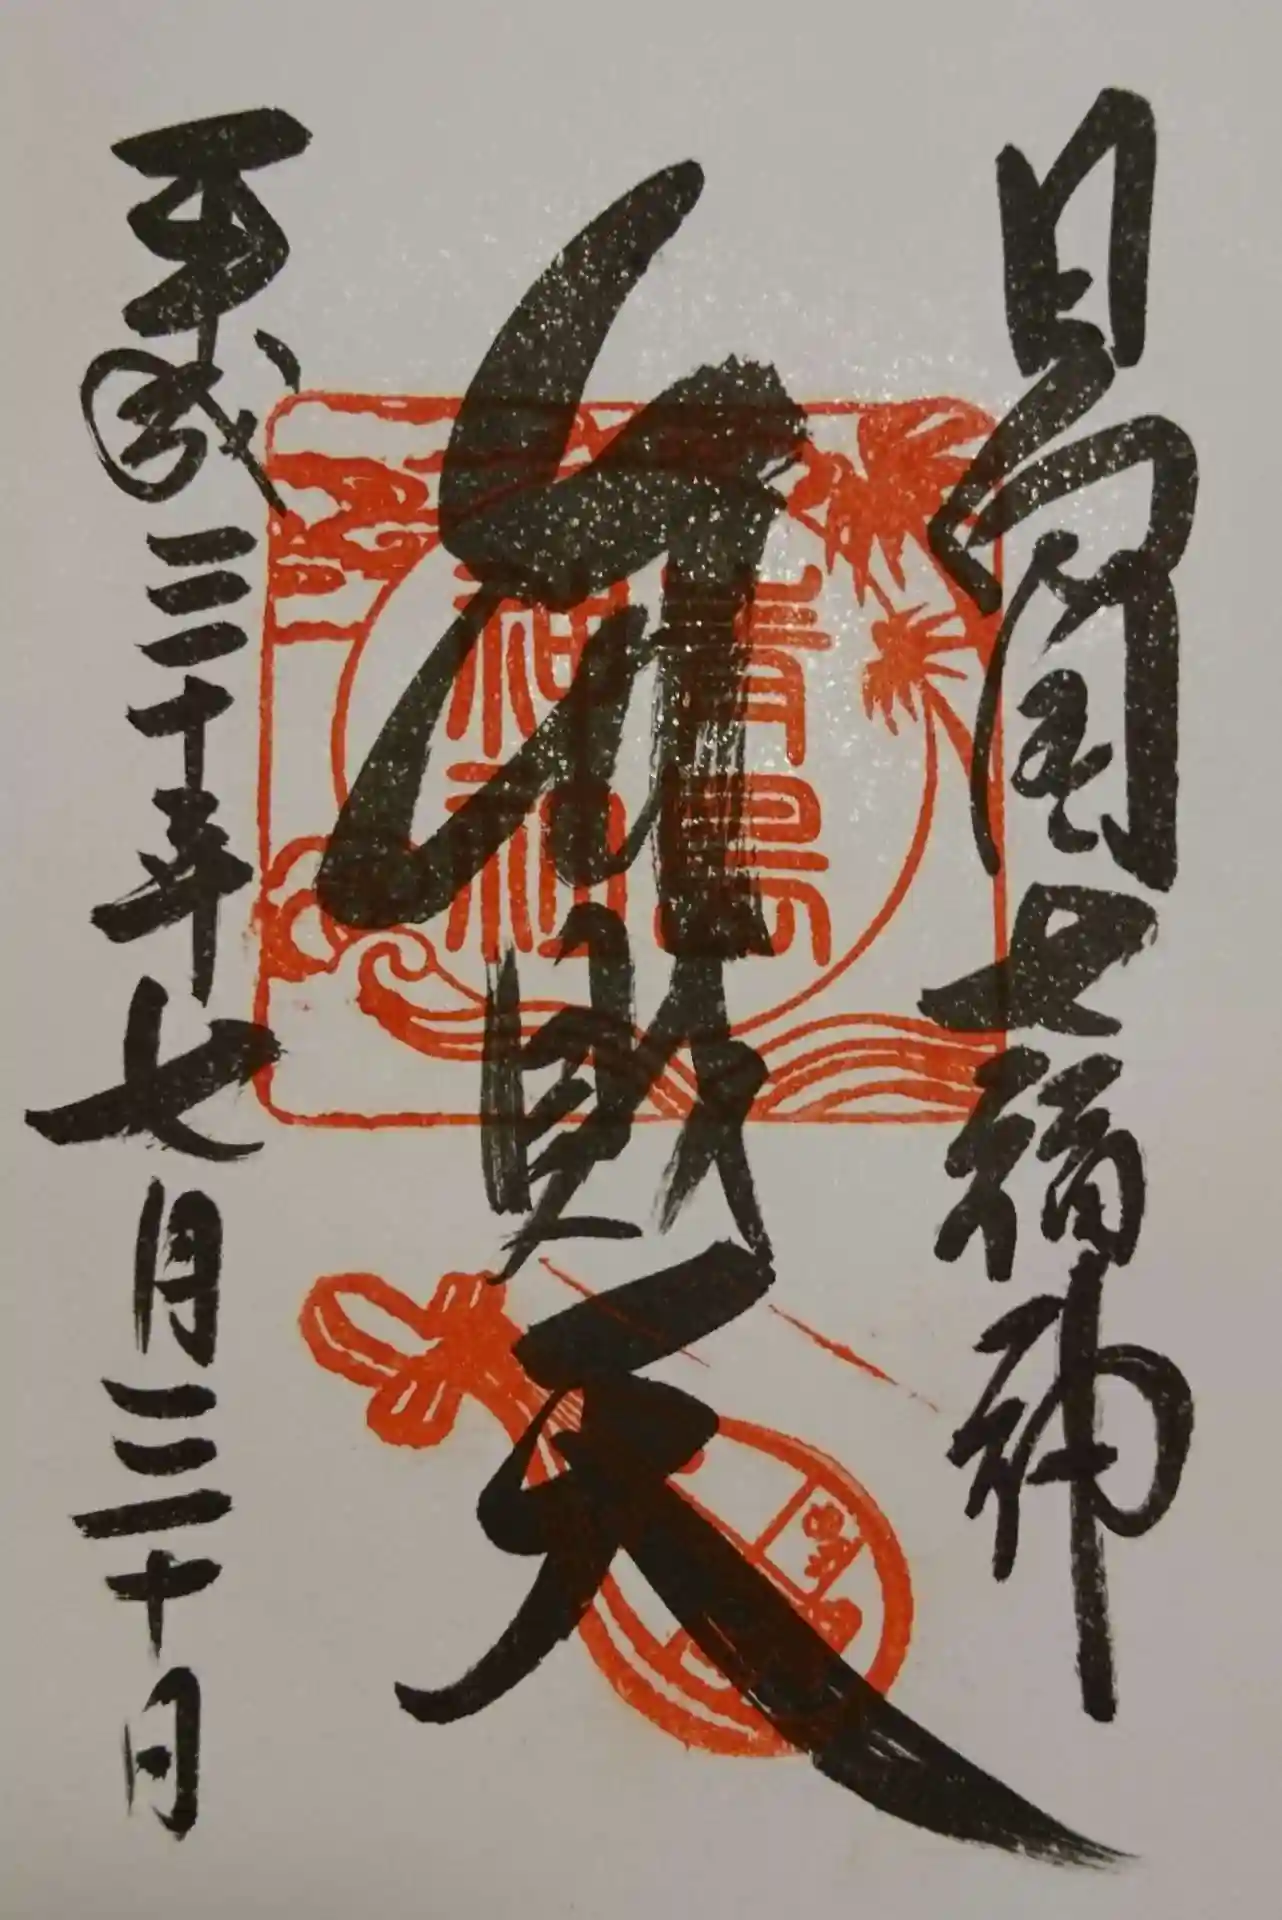 日向国七福神
弁財天
平成三十年七月三十日
青島
神社